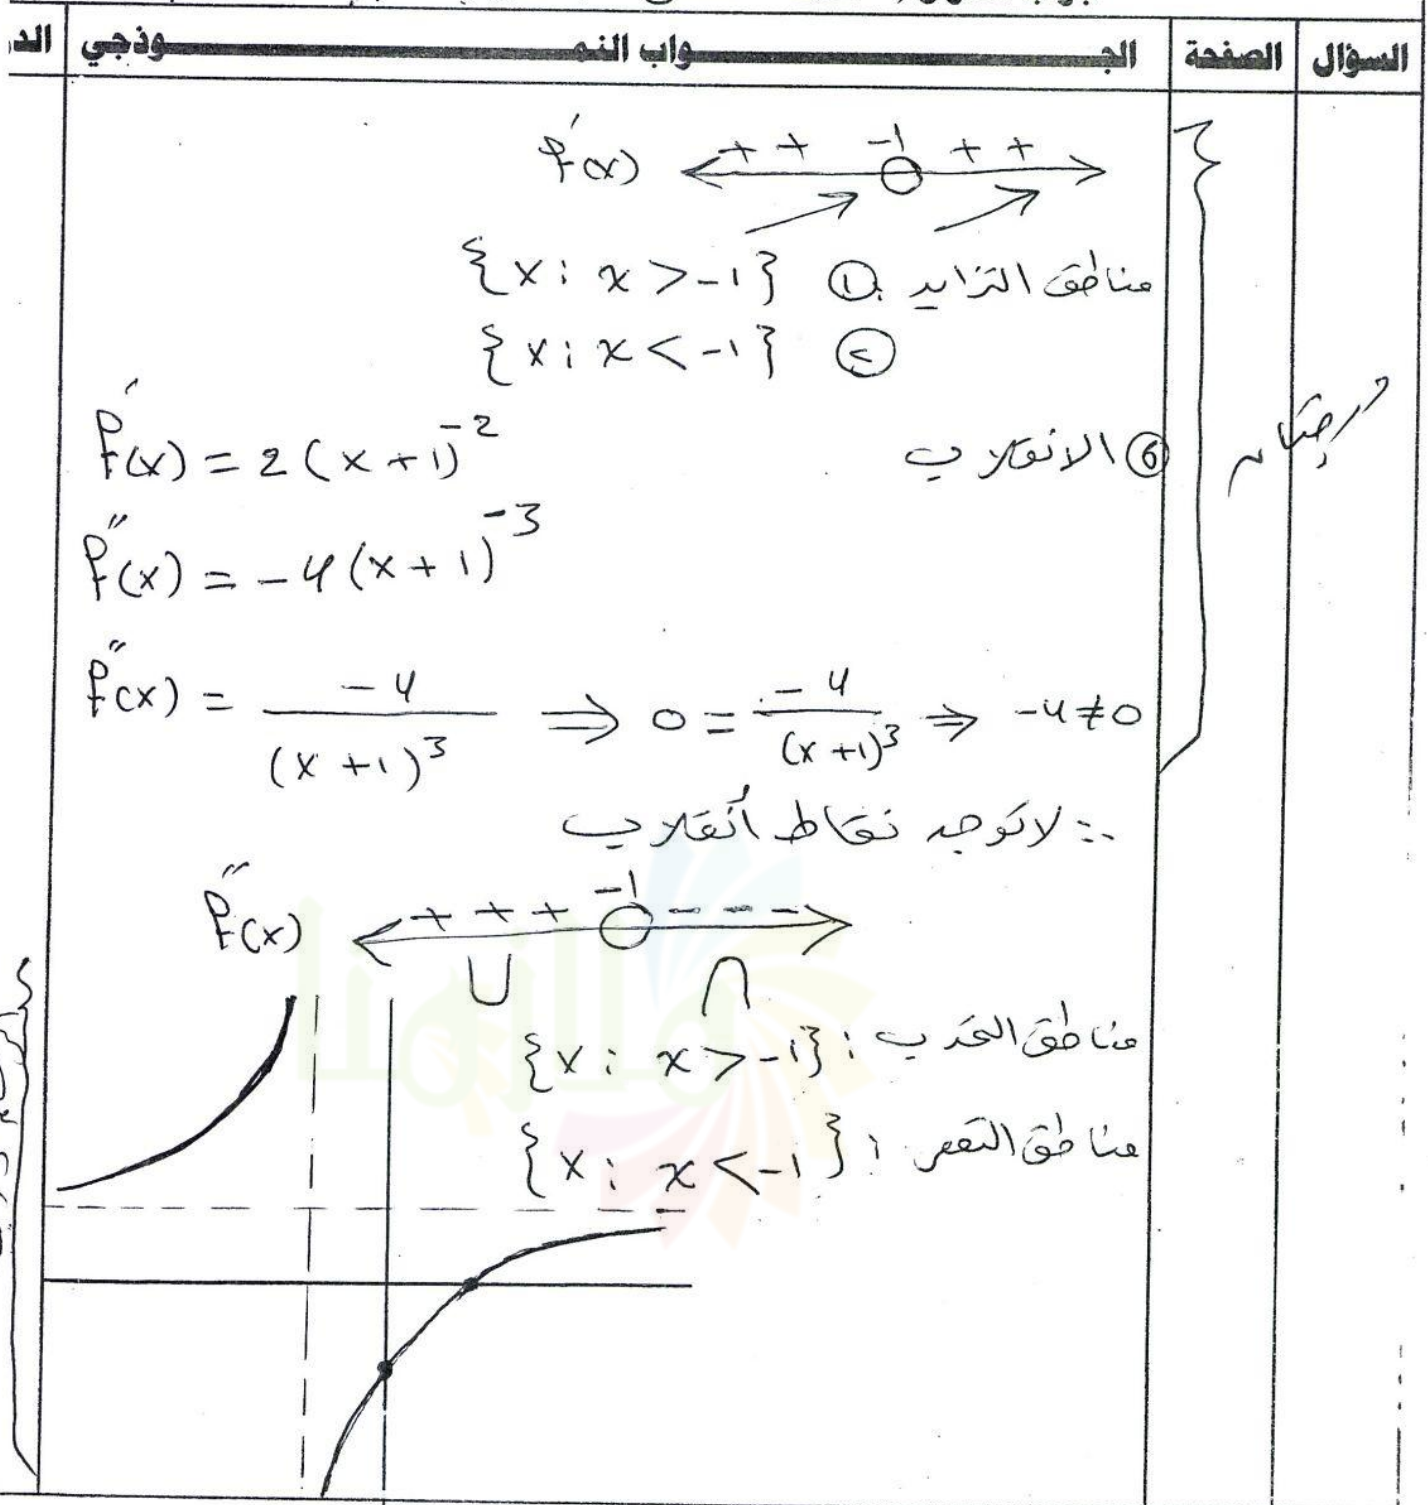 السؤال الصفحة الجـــواب النمـــوذجي الد
f'(x) + + -1 + +
مناطق التزايد ① {x : x > -1}
② {x : x < -1}
درجتان
⑥ الانقلاب
f'(x) = 2(x+1)^-2
f''(x) = -4(x+1)^-3
f''(x) = -4/(x+1)^3 ⇒ 0 = -4/(x+1)^3 ⇒ -4 ≠ 0
∴ لا توجد نقاط أنقلاب
f''(x) + + + -1 - - -
∪ ∩
مناطق التحدب : {x : x > -1}
مناطق التقعر : {x : x < -1}
ملازمنا